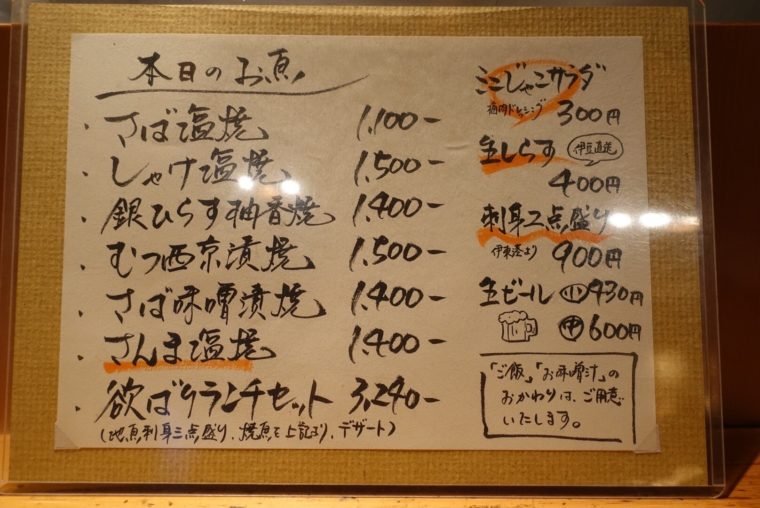 本日のお魚
・さば塩焼 1,100-
・しゃけ塩焼 1,500-
・銀ひらす柚香焼 1,400-
・むつ西京漬焼 1,500-
・さば味噌漬焼 1,400-
・さんま塩焼 1,400-
・欲ばりランチセット 3,240-
(地魚刺身三点盛り、焼魚を上記より、デザート)
ミニじゃこサラダ
梅肉ドレッシング 300円
生しらす 伊豆直送
400円
刺身二点盛り
伊東港より 900円
生ビール 小 430円
中 600円
「ご飯」「お味噌汁」の
おかわりは、ご用意
いたします。